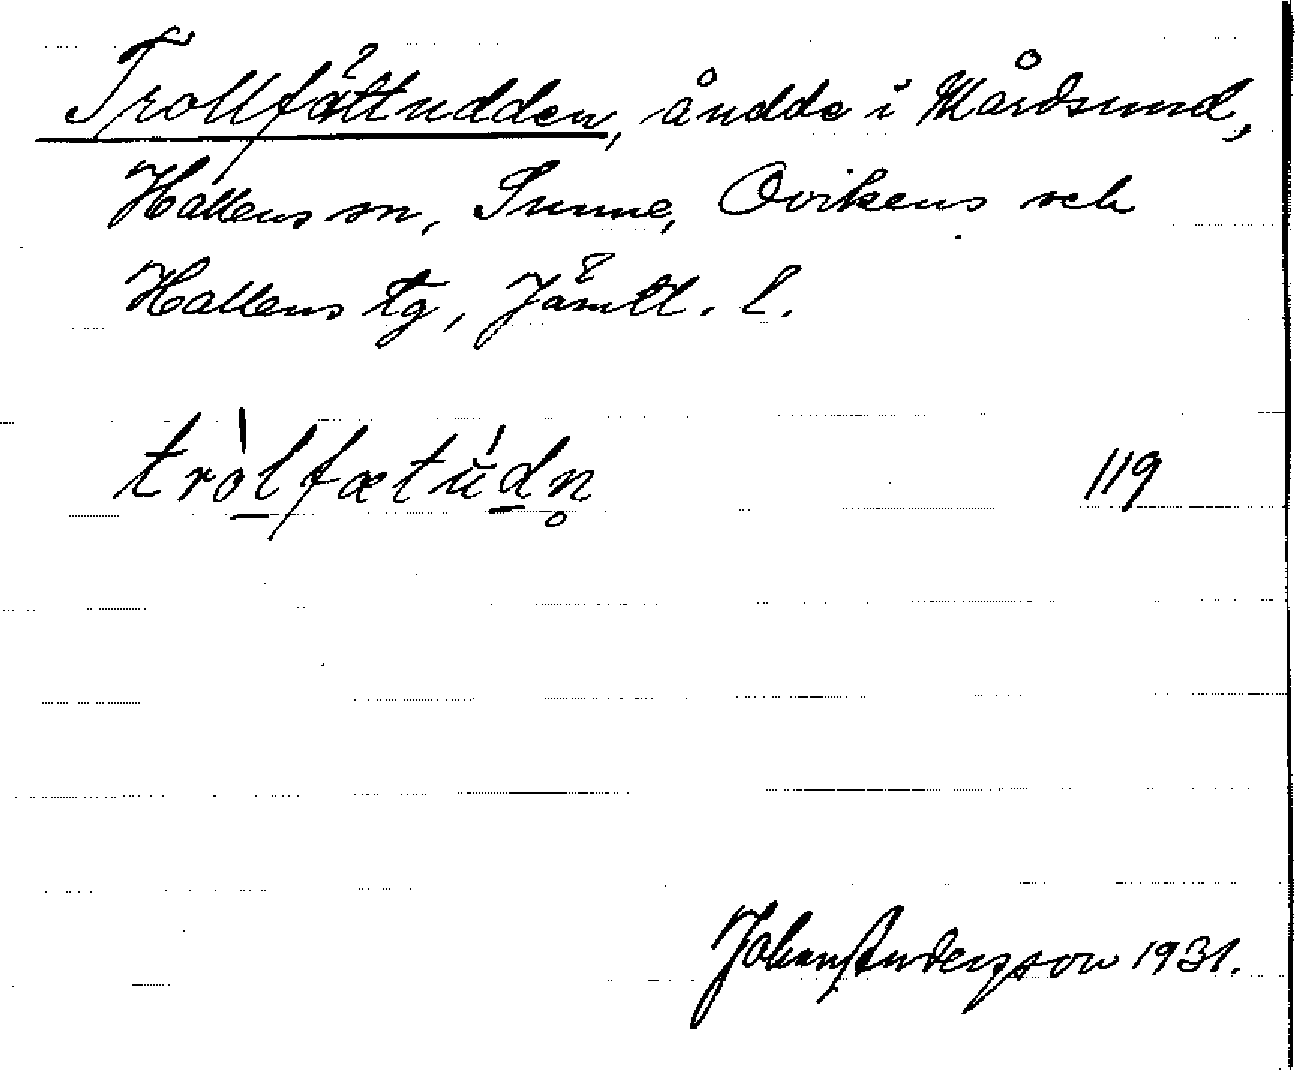 Trollfättudden, åudde i Mårdsund,
Hallens sn, Sunne, Ovikens och
Hallens tg, Jämtl. l.
tròlfætúdn̥ 119
Johan Andersson 1931.